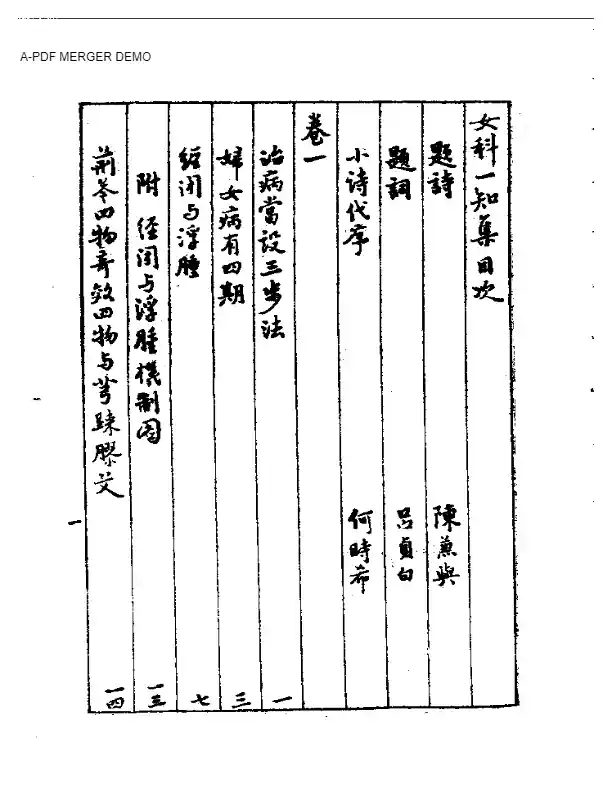 A-PDF MERGER DEMO
女科一知集目次
題詩 陳兼與
題詞 呂貞白
小诗代序 何時希
卷一
治病當設三步法 一
婦女病有四期 三
经闭与浮腫 七
附 经闭与浮腫機制图 一三
荊芩四物奇效四物与芎歸膠艾 一四